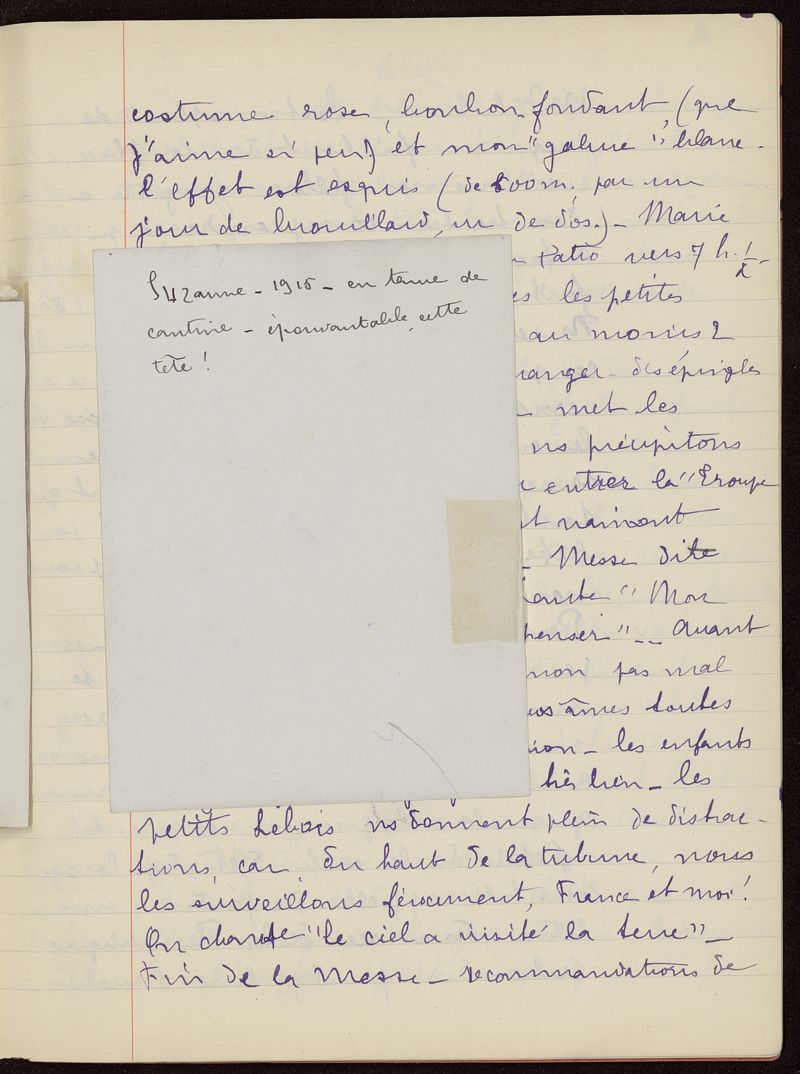 costume rose, bonbon fondant, (que
j'aime si peu) et mon "galure" blanc.
l'effet est exquis (de 500m, par un
jour de brouillard, vu de dos.) - Marie
- Patro vers 7 h. 1/2 -
es les petites
au moins 2
manger - des épingles
met les
ns précipitons
entrer la "Troupe
t vraiment
- Messe dite
chante "Mon
penser" -- Avant
non pas mal
nos âmes toutes
nion - les enfants
très bien - les
petits Lebois ns donnent plein de distrac-
tions, car, du haut de la tribune, nous
les surveillons férocement, France et moi!
On chante "le ciel a visité la terre" -
Fin de la Messe - recommandations de
Suzanne - 1915 - en tenue de
cantine - épouvantable cette
tête !